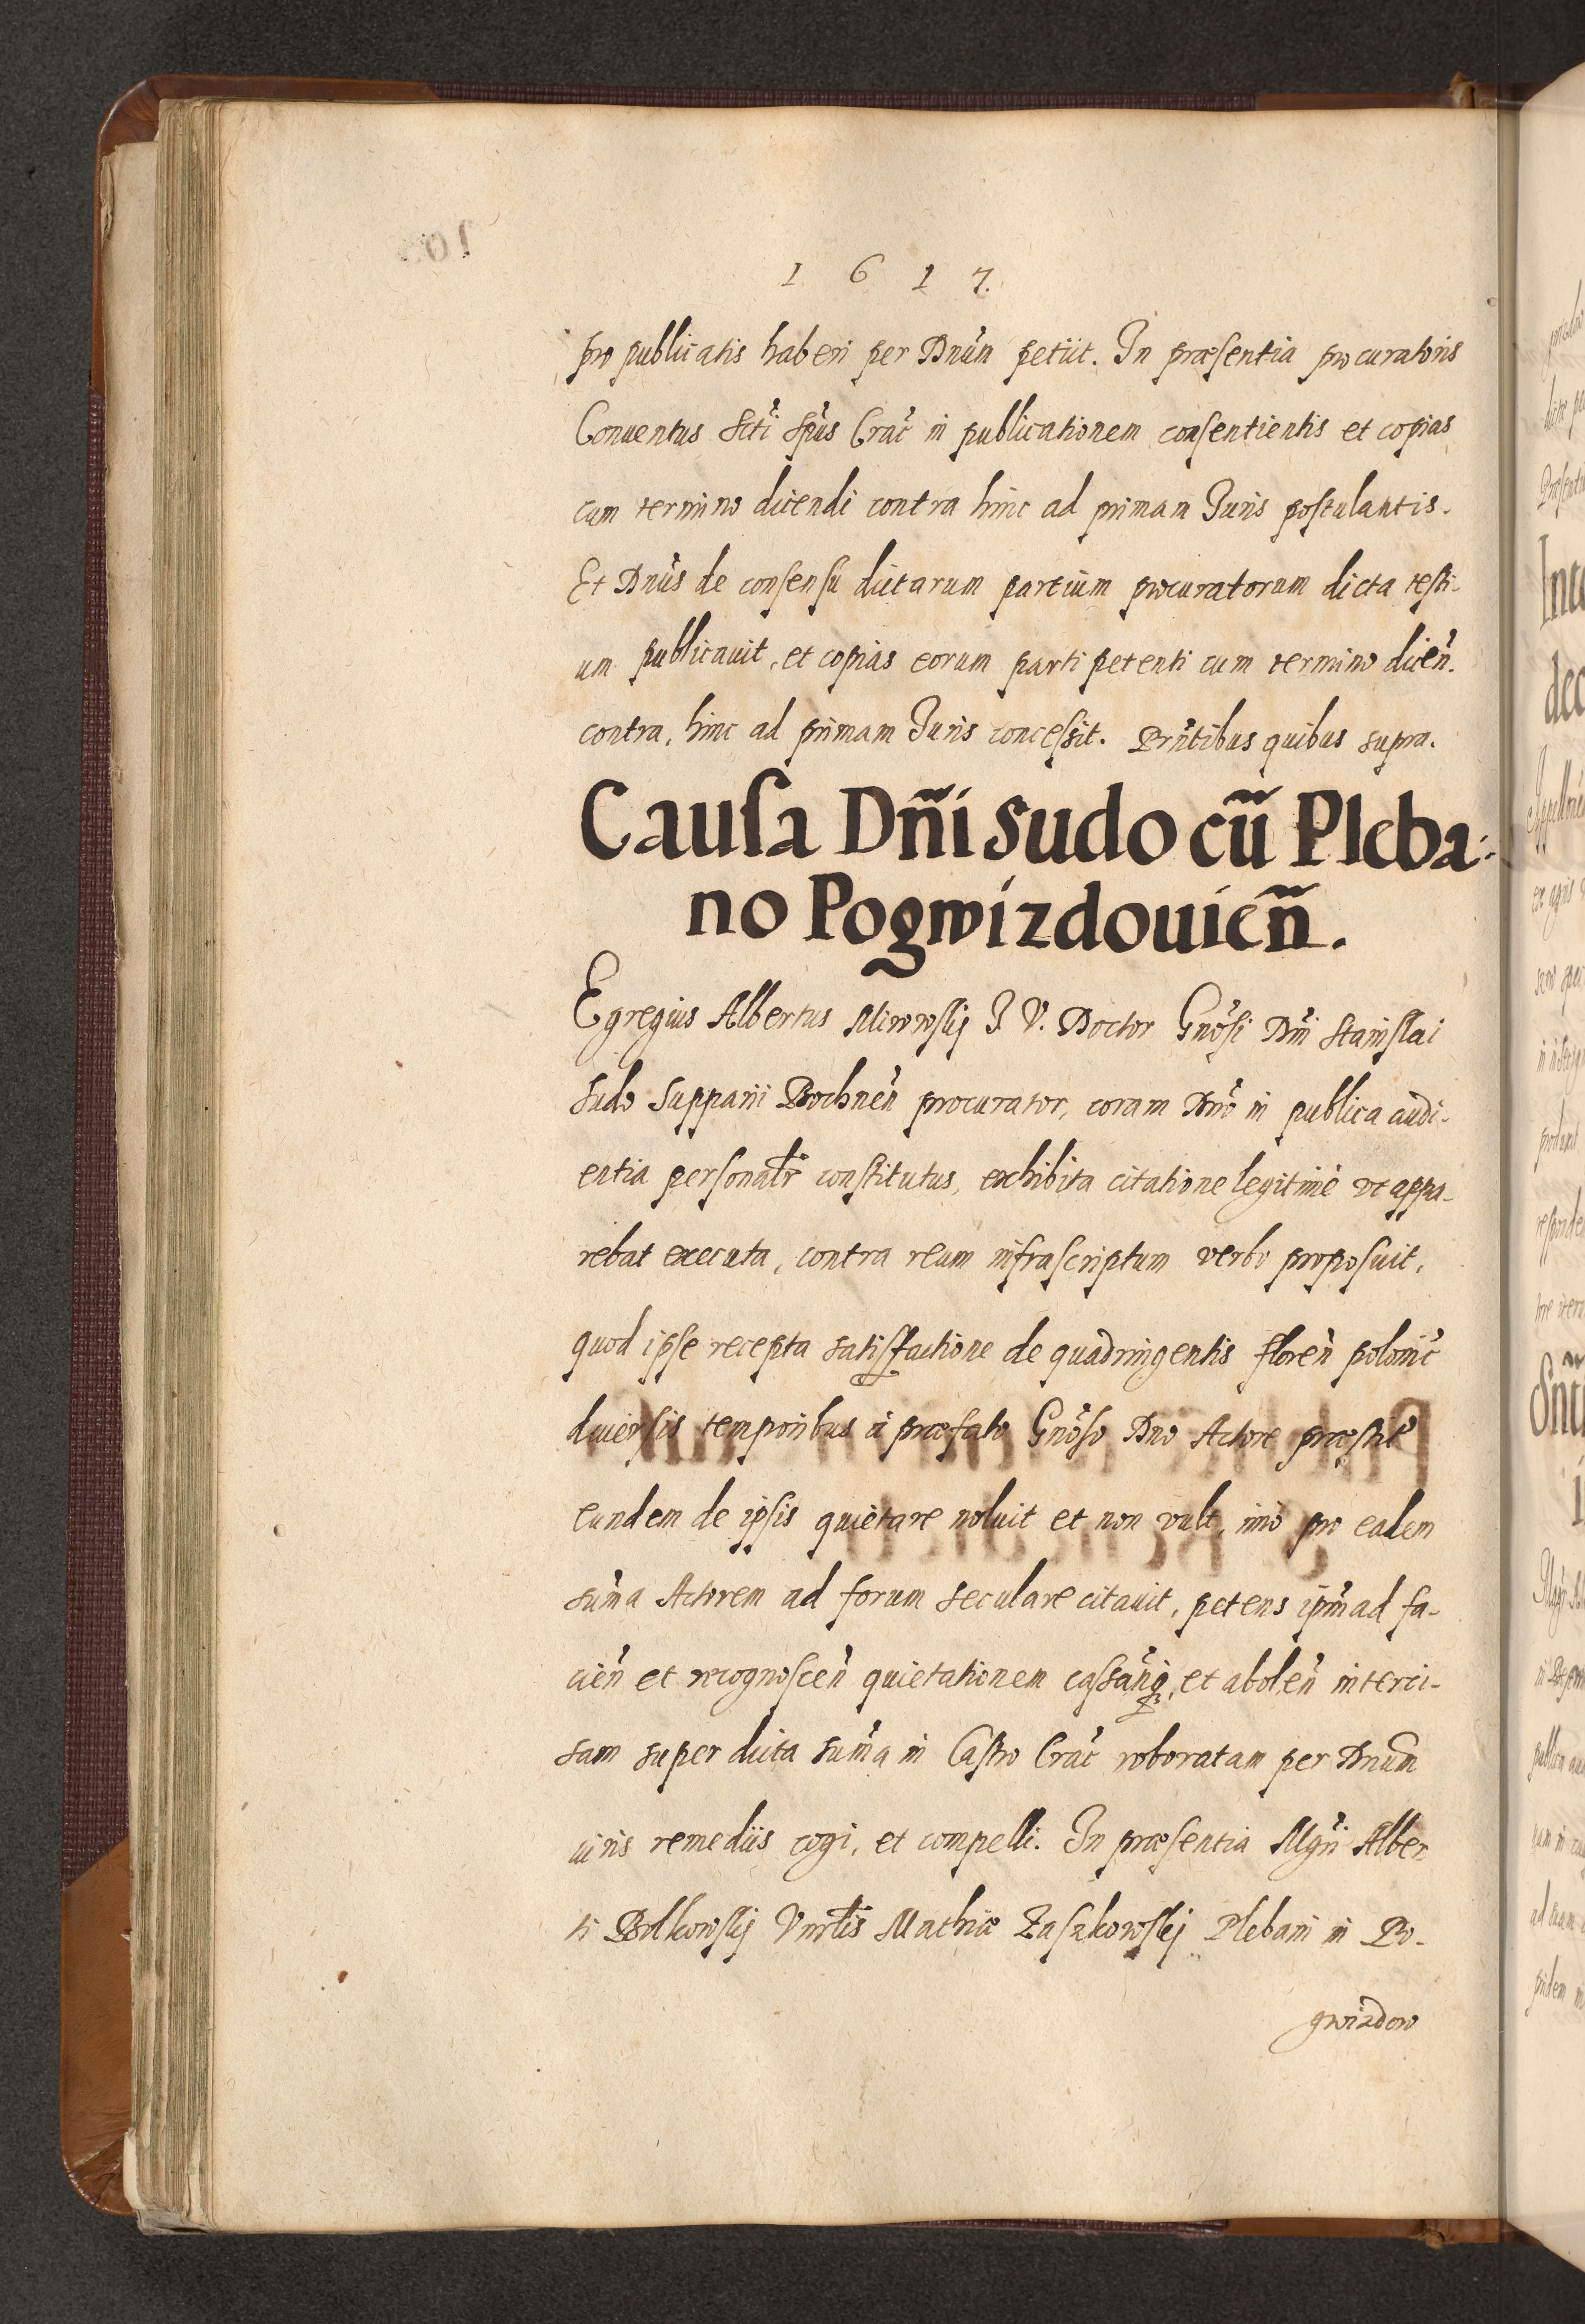 1617.
pro publicatis haberi per Dnum petiit. In præsentia procuratoris
Conuentus Scti Spus Crac in publicationem consentientis et copias
cum termino dicendi contra hinc ad primam Iuris postulantis.
Et Dnus de consensu dictarum partium procuratorum dicta testi-
um publicauit, et copias eorum parti petenti cum termino dicen.
contra, hinc ad primam Iuris concessit. Prntibus quibus supra.
Causa Dñi Sudo cũ Pleba:
no Pogwizdouicñ.
Egregius Albertus I. V. Doctor Gnosi Dni Stanislai
Sudo Supparii Bochnen procurator, coram Dno in publica audi-
entia personalr constitutus, exhibita citatione legitimè vt appa-
rebat executa, contra reum infrascriptum verbo proposuit,
quod ipse recepta satisfactione de quadringentis floren polonic
diuersis temporibus à præfato Gnoso Dno Actore
eundem de ipsis quietare noluit et non vult, imò pro eadem
suma Actorem ad forum seculare citauit, petens ipm ad fa-
cien et recognoscen quietationem et abolen interci-
sam super dicta suma in Castro Crac roboratam per Dnum
iuris remediis cogi, et compelli. In præsentia Mgri Alber
ti Bolkowskij Vnrlis Mathiæ Zaszkowskij Plebani in Po-
gwizdow